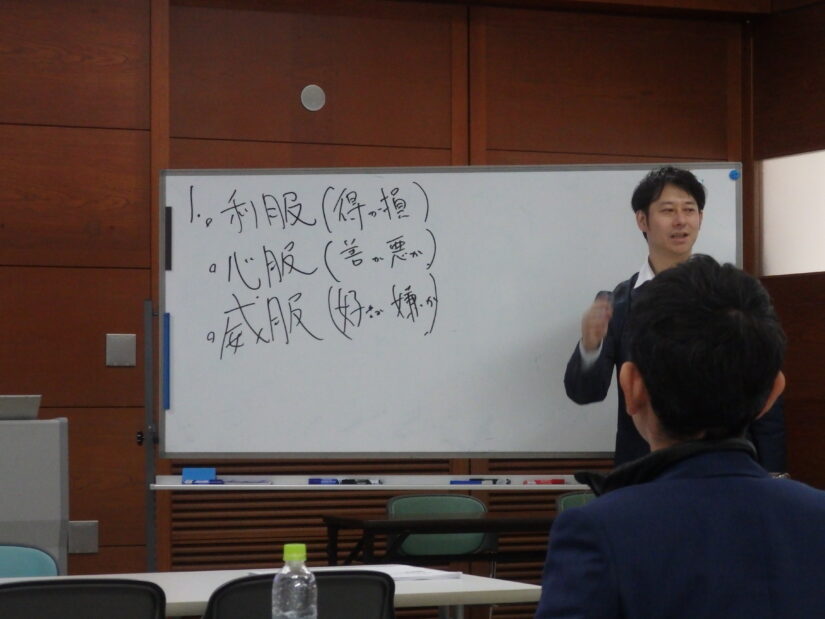 1.。利服(得か損)
。心服(善か悪か)
。威服(好きか嫌いか)